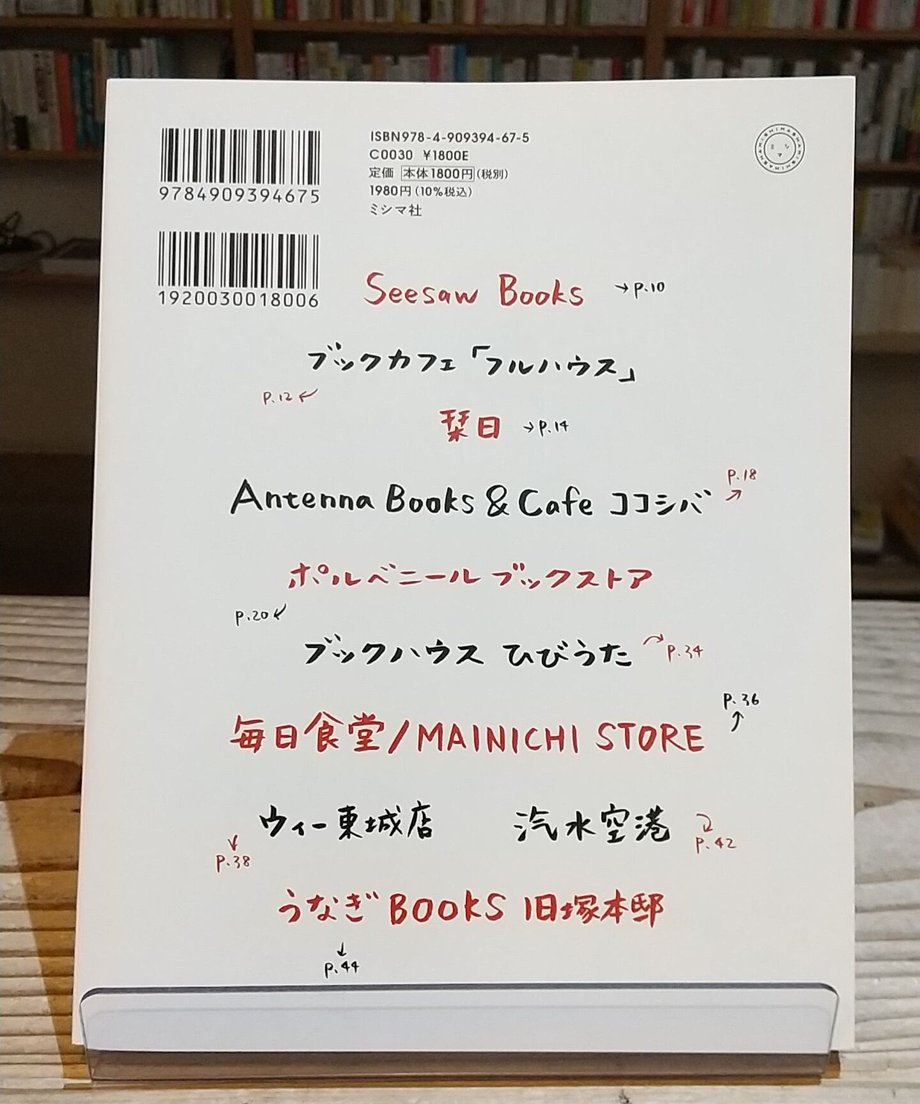 9784909394675
1920030018006
ISBN978-4-909394-67-5
C0030 ¥1800E
定価 本体1800円(税別)
1980円(10%税込)
ミシマ社
Seesaw Books →p.10
ブックカフェ「フルハウス」
p.12
栞日 →p.14
p.18
Antenna Books & Cafe ココシバ
ポルベニール ブックストア
p.20
ブックハウス ひびうた p.34
p.36
毎日食堂/MAINICHI STORE
ウィー東城店 汽水空港
p.38 p.42
うなぎBOOKS 旧塚本邸
p.44